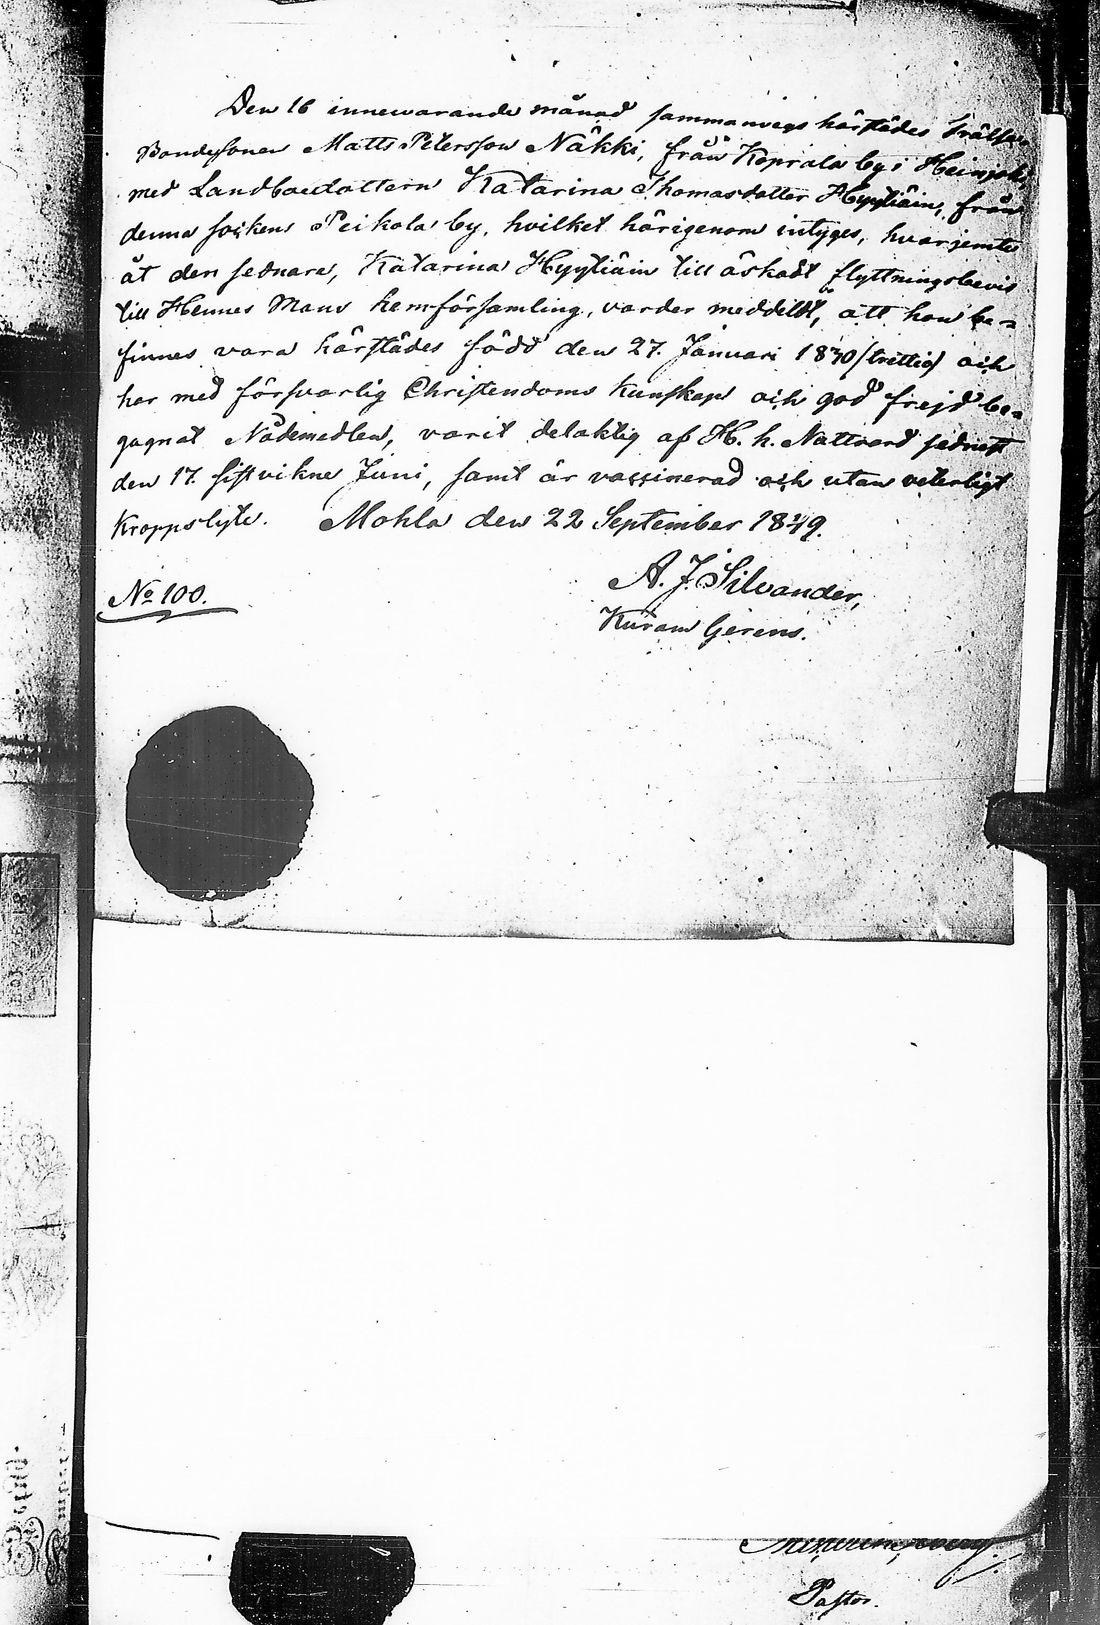 Den 16 innevarande månad sammanvegs härstädes Frälse-
Bondesonen Matts Petersson Näkki, från Koprala by i Heinjoki,
med Landboedottern Katarina Thomasdotter Hyytiäin, från
denna sockens Peikola by, hvilket härigenom intyges, hvarjemte
åt den sednare, Katarina Hyytiäin till äskadt flyttningsbevis
till Hennes Mans hemförsamling, varder meddeldt, att hon be-
finnes vara härstädes född den 27. Januari 1830 (trettio) och
har med försvarlig Christendoms kunskap och god frejd be-
gagnat Nådemedlen, varit delaktig af H. h. Nattvard sednast
den 17. sistvikne Juni, samt är vassinerad och utan veterligt
Kroppslyte. Mohla den 22 September 1849.
A. J. Silvander,
Kuram Gerens.
No 100.
Pastor.